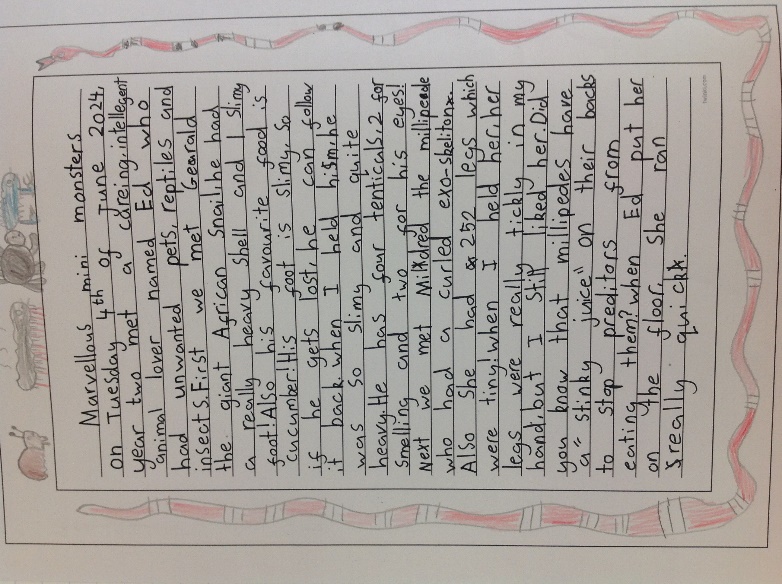 Marvellous mini monsters
on Tuesday 4th of June 2024,
year two met a careing, intellegent
animal lover named Ed who
had unwanted pets, reptiles and
insects. First we met Gearald
the giant African Snail, he had
a really heavy shell and 1 slimy
foot! Also his favourite food is
cucumber! His foot is slimy, so
if he gets lost, he can follow
it back. when I held him, he
was so slimy and quite
heavy. He has four tenticals, 2 for
Smelling and two for his eyes!
Next we met Mildred the millipede
who had a curled exo-skeliton.
Also she had 252 legs which
were tiny! when I held her, her
legs were really tickly in my
hand, but I still liked her. Did
you know that millipedes have
a "stinky juice" on their backs
to stop preditors from
eating them? when Ed put her
on the floor, She ran
really quick.